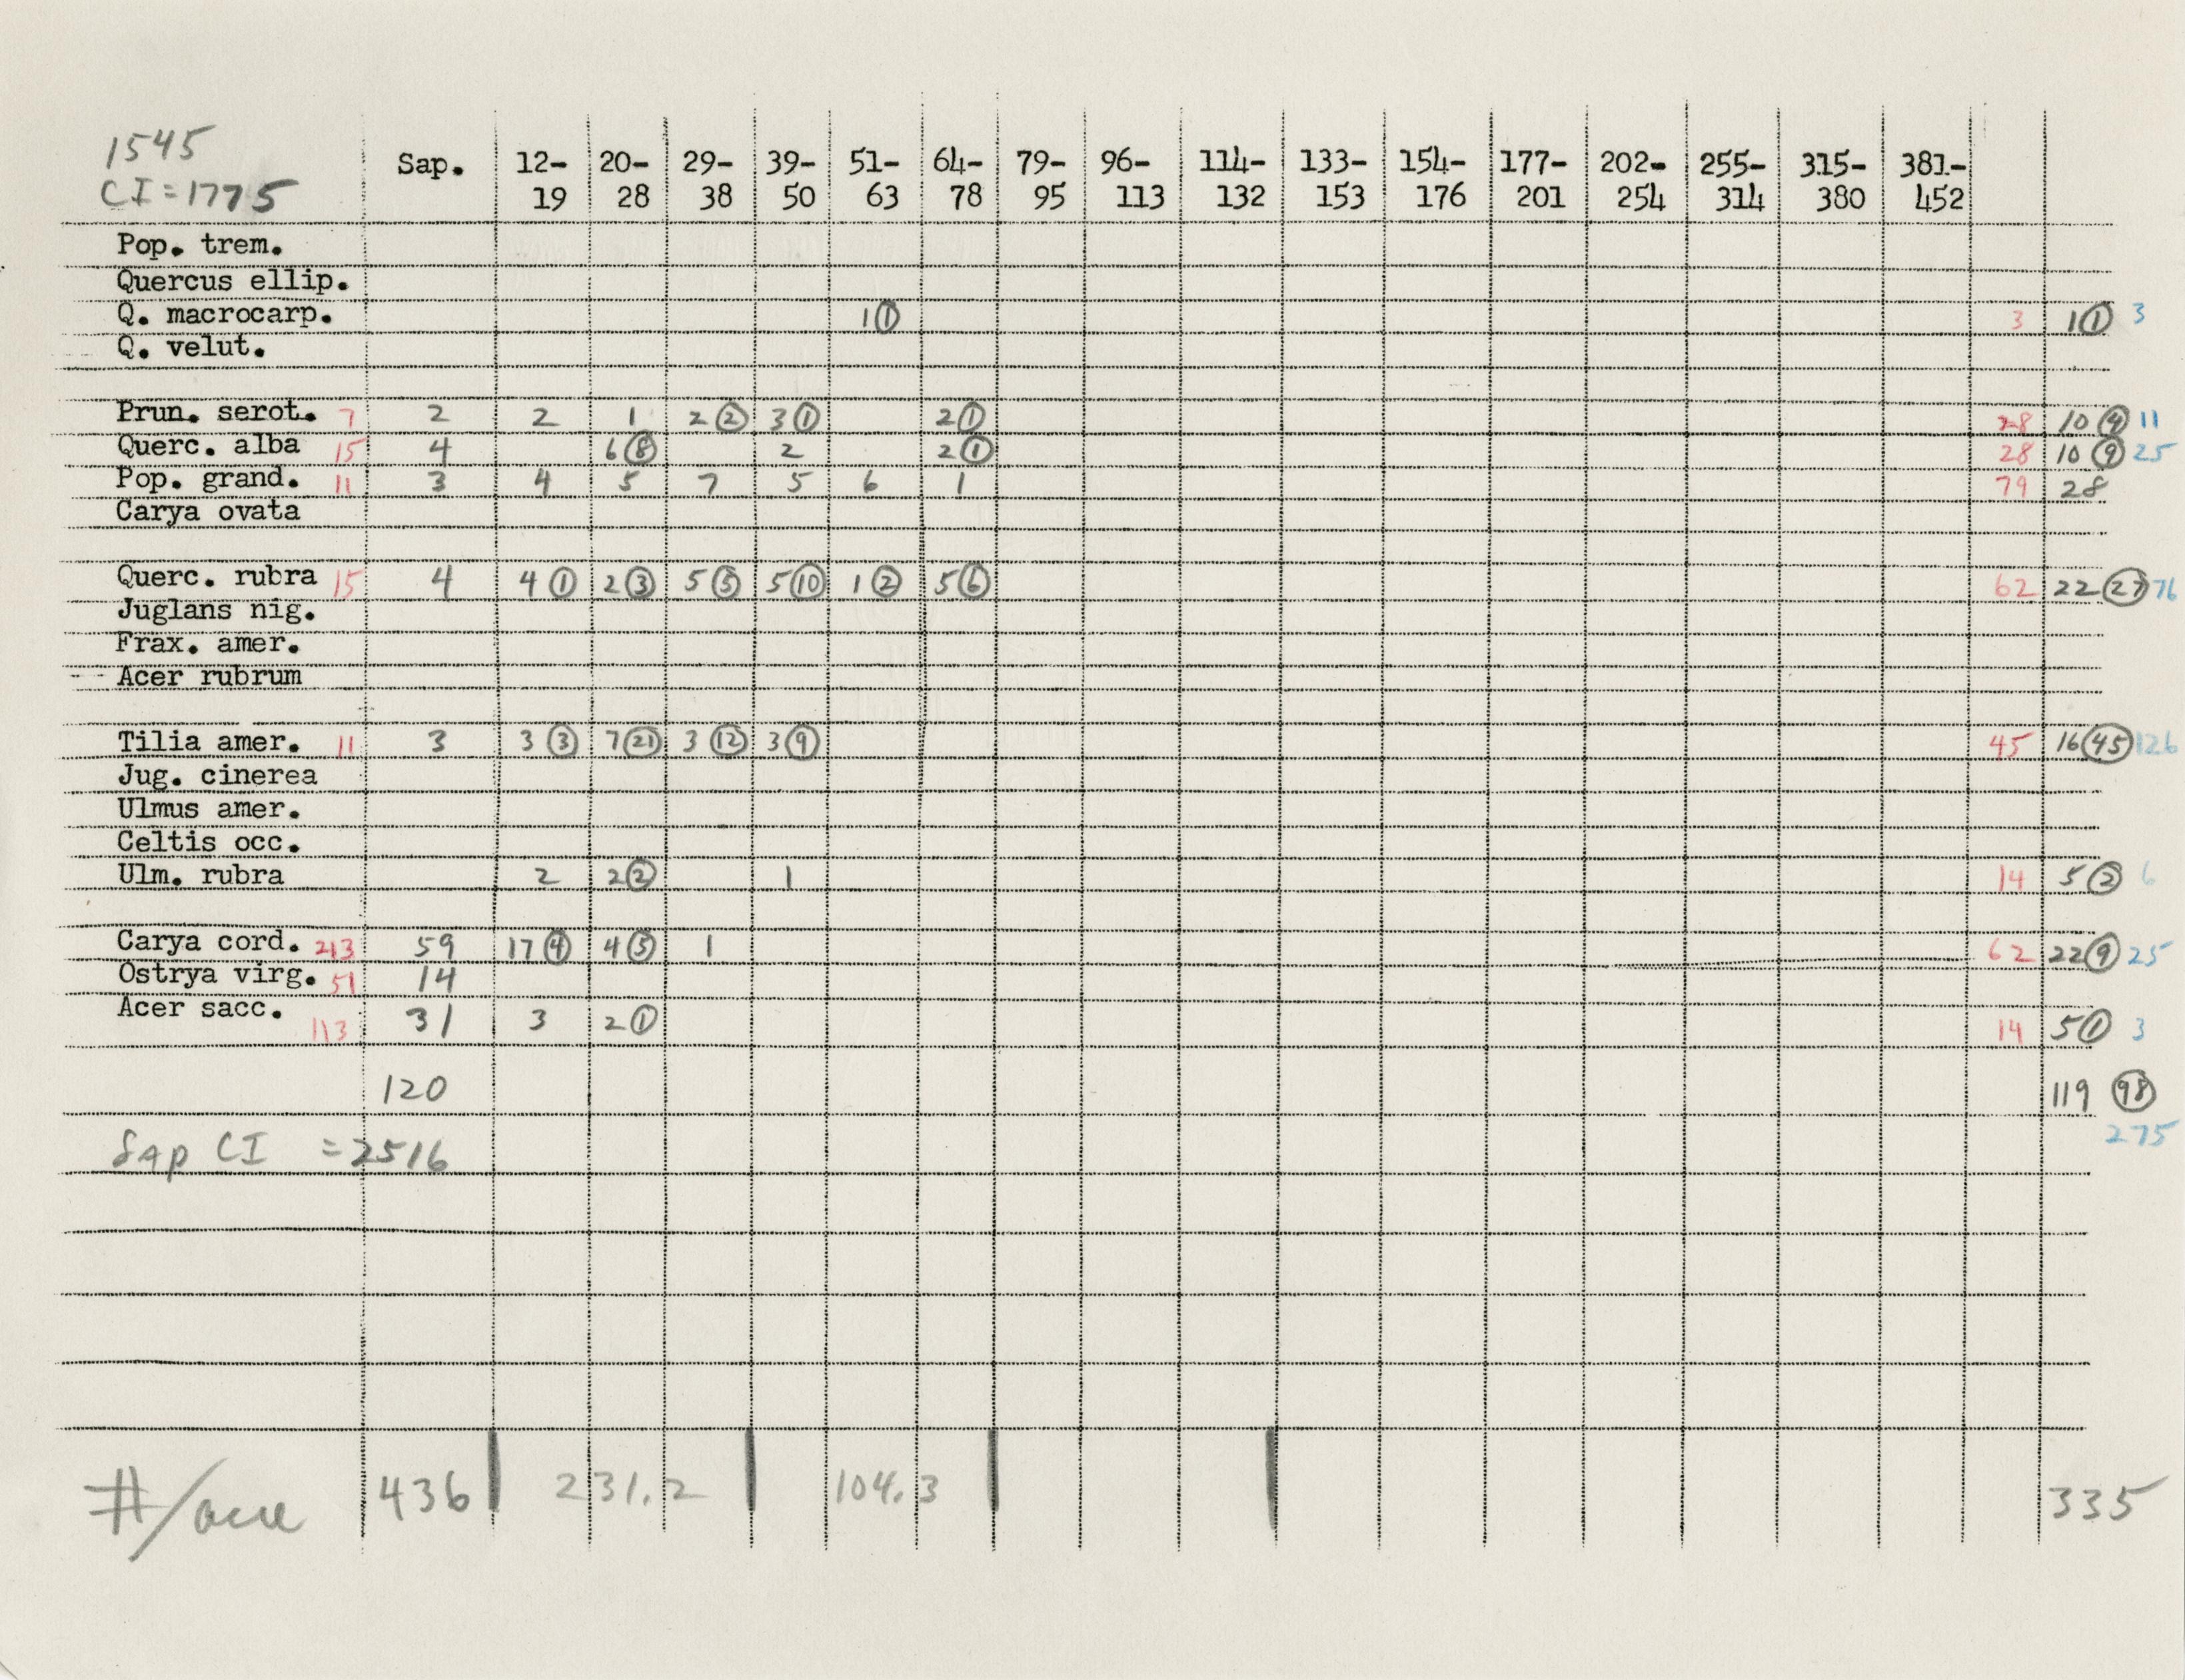 1545
CI=1775
Sap. 12- 20- 29- 39- 51- 64- 79- 96- 114- 133- 154- 177- 202- 255- 315- 381-
19 28 38 50 63 78 95 113 132 153 176 201 254 314 380 452
Pop. trem.
Quercus ellip.
Q. macrocarp. 1 1 3 1 1 3
Q. velut.
Prun. serot. 7 2 2 1 2 2 3 1 2 1 28 10 4 11
Querc. alba 15 4 6 8 2 2 1 28 10 9 25
Pop. grand. 11 3 4 5 7 5 6 1 79 28
Carya ovata
Querc. rubra 15 4 4 1 2 3 5 5 5 10 1 2 5 6 62 22 27 76
Juglans nig.
Frax. amer.
Acer rubrum
Tilia amer. 11 3 3 3 7 21 3 12 3 9 45 16 45 126
Jug. cinerea
Ulmus amer.
Celtis occ.
Ulm. rubra 2 2 2 1 14 5 2 6
Carya cord. 213 59 17 4 4 5 1 62 22 9 25
Ostrya virg. 51 14
Acer sacc. 113 31 3 2 1 14 5 1 3
120 119 98
275
Sap CI = 2516
#/acre 436 231.2 104.3 335